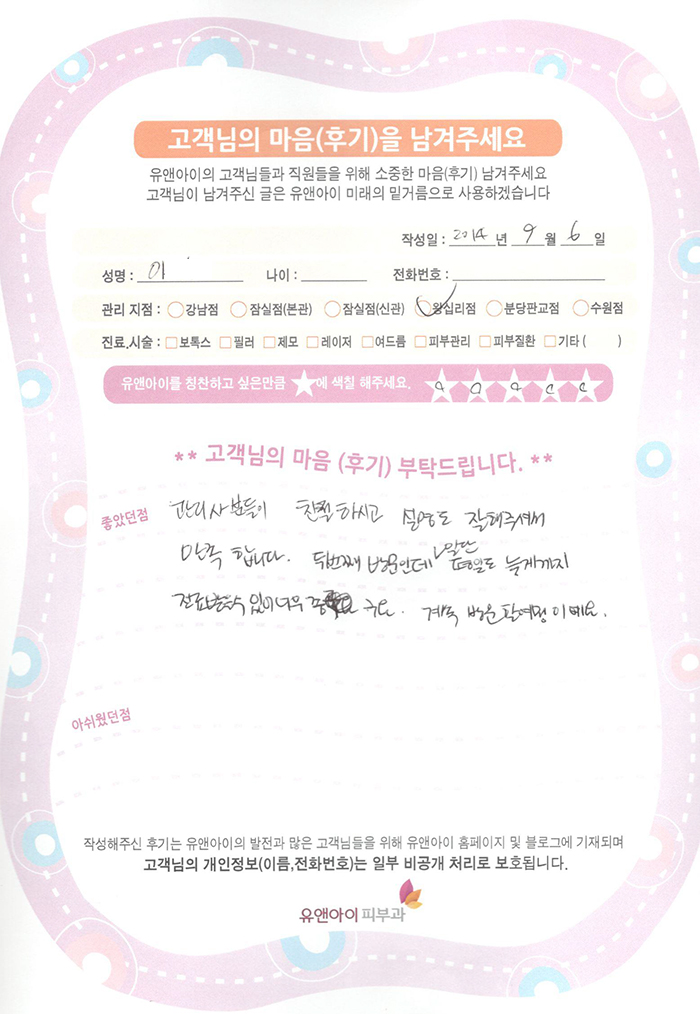 고객님의 마음(후기)을 남겨주세요
유앤아이의 고객님들과 직원들을 위해 소중한 마음(후기) 남겨주세요
고객님이 남겨주신 글은 유앤아이 미래의 밑거름으로 사용하겠습니다
작성일 : 2014 년 9 월 6 일
성명 : 이 나이 : 전화번호 :
관리 지점 : 강남점 잠실점(본관) 잠실점(신관) 왕십리점 분당판교점 수원점
진료.시술 : 보톡스 필러 제모 레이저 여드름 피부관리 피부질환 기타 ( )
유앤아이를 칭찬하고 싶은만큼 ★에 색칠 해주세요.
** 고객님의 마음 (후기) 부탁드립니다. **
좋았던점
관리사분들이 친절하시고 설명도 잘해주셔서
만족 합니다. 두번째 방문인데 일단 평일도 늦게까지
진료받을수 있어 너무 구요. 계속 방문할예정이에요.
아쉬웠던점
작성해주신 후기는 유앤아이의 발전과 많은 고객님들을 위해 유앤아이 홈페이지 및 블로그에 기재되며
고객님의 개인정보(이름,전화번호)는 일부 비공개 처리로 보호됩니다.
유앤아이피부과